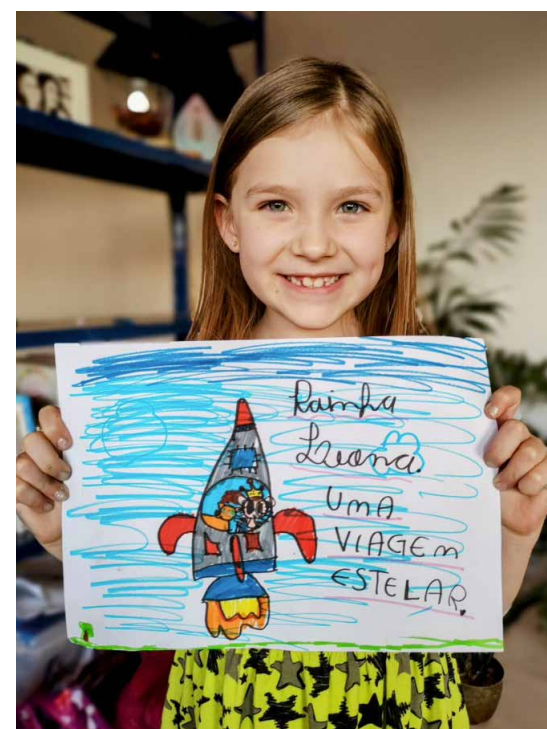 Rainha
Leona.
UMA
VIAGEM
ESTELAR.